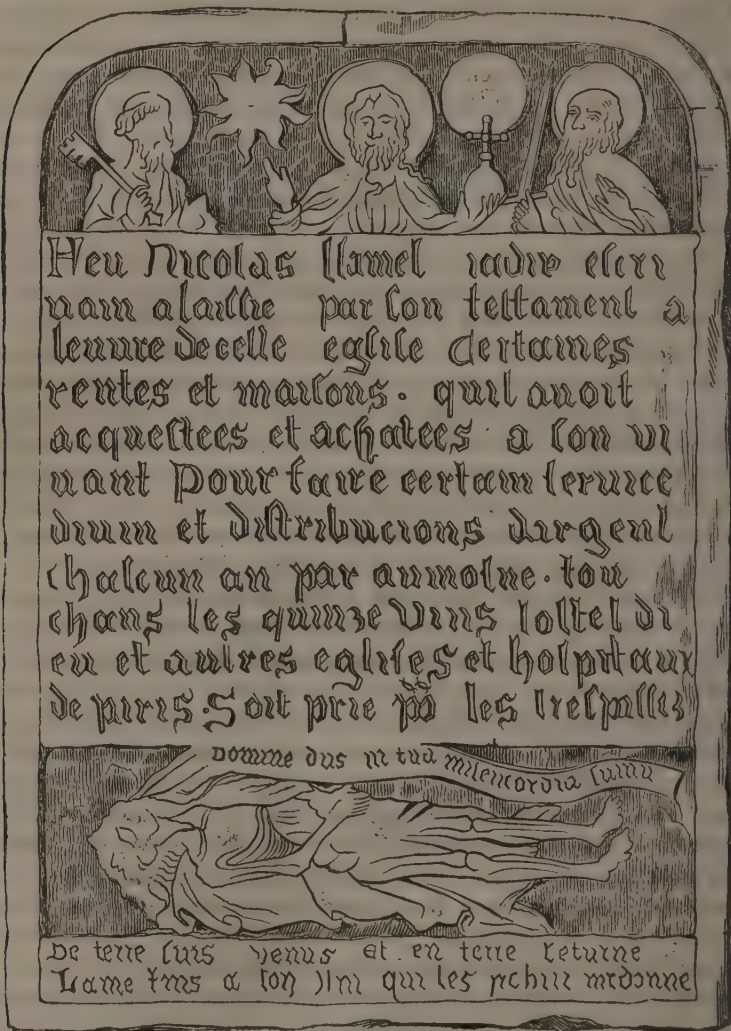 Feu Nicolas flamel iadis escri
uain a laissie par son testament a
leuure de celle eglise Certaines
rentes et maisons. quil auoit
acquestees et achatees a son vi
uant pour faire certain seruice
diuin et distribucions dargent
chascun an par aumosne. tou
chans les quinze vins lostel di
eu et autres eglises et hospitaux
de paris. Soit prie les trespasses
Domine dus in tua misericordia
De terre suis venus et en terre retorne
Lame rens a toy qui les